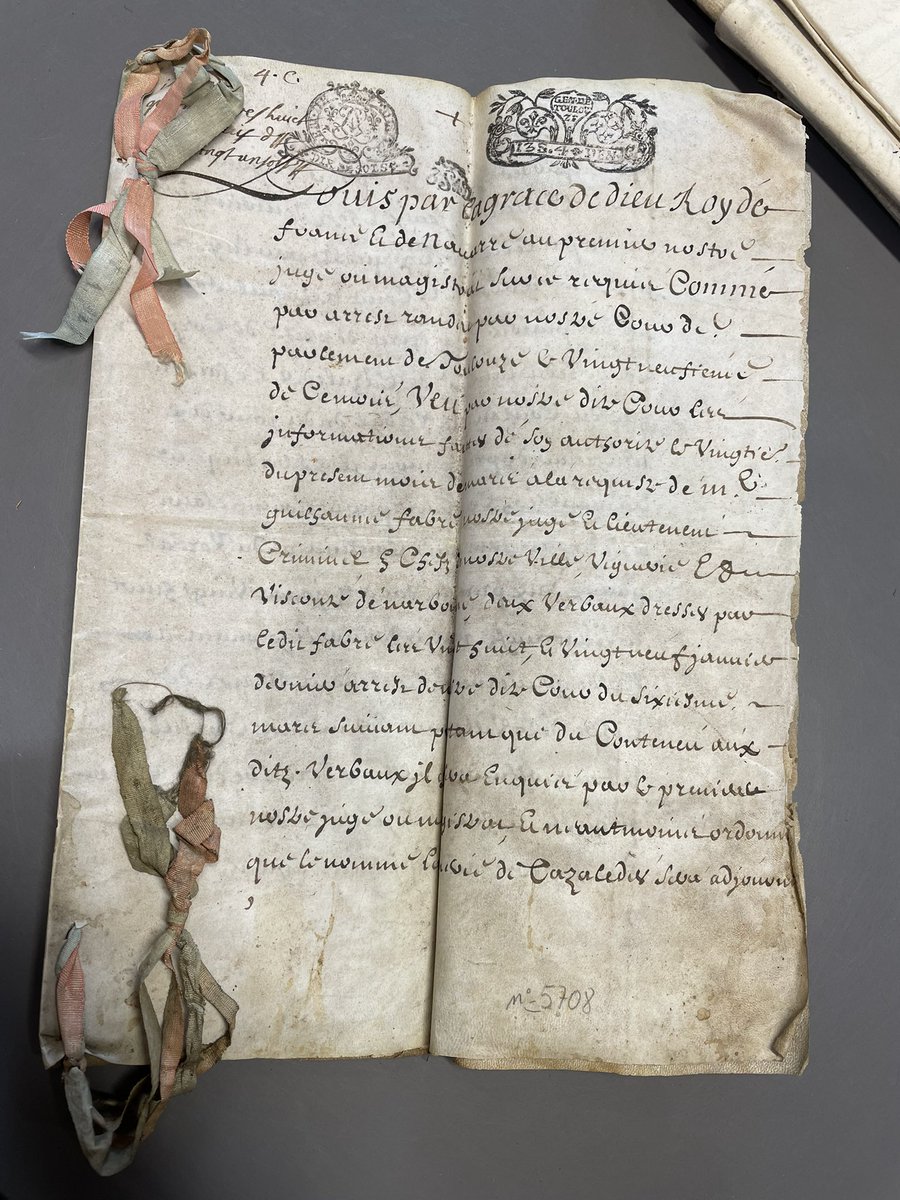 4. C.
GEN. DE
TOULOUZE
13 S. 4 DEN
Louis par la grace de dieu Roy de
france Et de Navarre au premier nostre
juge ou magistrat sur ce requis Comme
par arrest randu par nostre Cour de
parlement de Toulouze le Vingtneufieme
de Cemois, Veu par nostre dite Cour les
jnformations faites de son authorite le Vingtie
du present mois de mars a la requiste de m. Et
guilhaume fabre nostre juge Et lieutenent
Criminel En Chef nostre Ville, Viguerie Et
Visconte de narbonne, deux Verbaux dresses par
ledit fabre les Vint huict, Et Vingtneuf janvier
dernier arrest de nostre dite Cour du sixiesme
mars suivant portant que du Conteneu aux
ditz Verbaux jl sera Enquis par le premier
nostre juge ou magistrat, Et neantmoins ordonné
que le nomme de Cazaledes sera adjourn
n° 5708